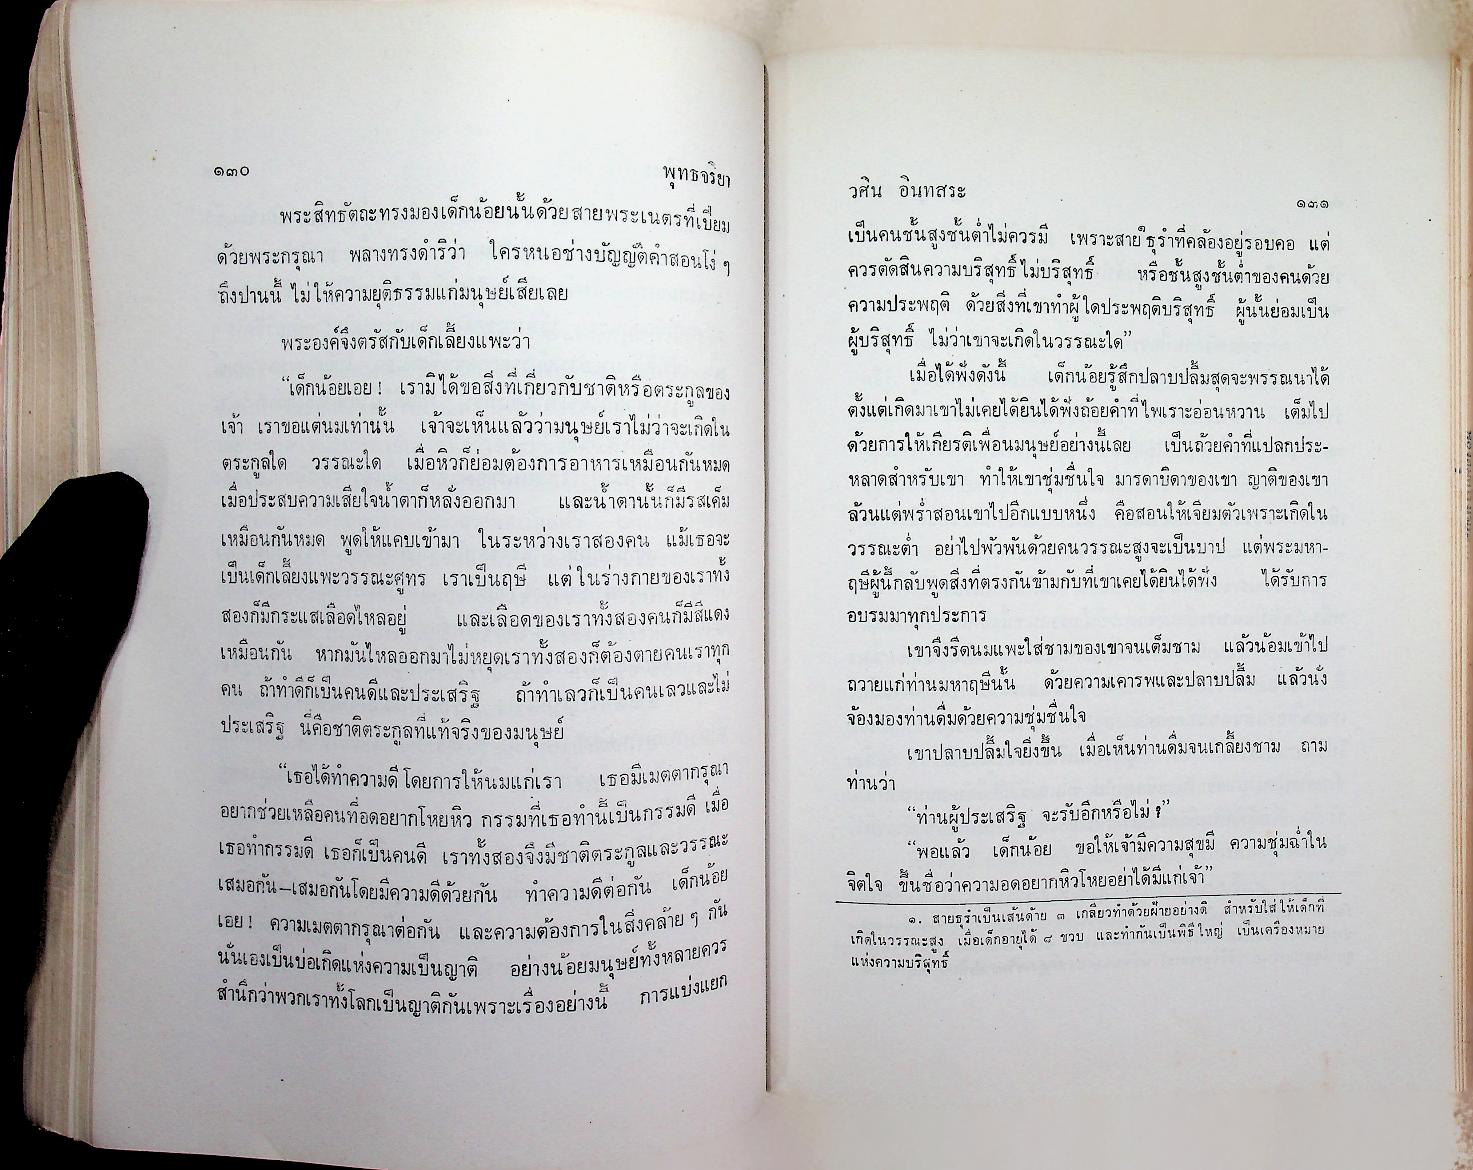 ๑๓๐
พุทธจริยา
พระสิทธัตถะทรงมองเด็กน้อยนั้นด้วยสายพระเนตรที่เปี่ยม
ด้วยพระกรุณา พลางทรงดำริว่า ใครหนอช่างบัญญัติคำสอนโง่ ๆ
ถึงปานนี้ ไม่ให้ความยุติธรรมแก่มนุษย์เสียเลย
พระองค์จึงตรัสกับเด็กเลี้ยงแพะว่า
“เด็กน้อยเอย! เรามิได้ขอสิ่งที่เกี่ยวกับชาติหรือตระกูลของ
เจ้า เราขอแต่นมเท่านั้น เจ้าจะเห็นแล้วว่ามนุษย์เราไม่ว่าจะเกิดใน
ตระกูลใด วรรณะใด เมื่อหิวก็ย่อมต้องการอาหารเหมือนกันหมด
เมื่อประสบความเสียใจน้ำตาก็หลั่งออกมา และน้ำตานั้นก็มีรสเค็ม
เหมือนกันหมด พูดให้แคบเข้ามา ในระหว่างเราสองคน แม้เธอจะ
เป็นเด็กเลี้ยงแพะวรรณะศูทร เราเป็นฤษี แต่ในร่างกายของเราทั้ง
สองก็มีกระแสเลือดไหลอยู่ และเลือดของเราทั้งสองคนก็มีสีแดง
เหมือนกัน หากมันไหลออกมาไม่หยุดเราทั้งสองก็ต้องตายคนเราทุก
คน ถ้าทำดีก็เป็นคนดีและประเสริฐ ถ้าทำเลวก็เป็นคนเลวและไม่
ประเสริฐ นี่คือชาติตระกูลที่แท้จริงของมนุษย์
“เธอได้ทำความดีโดยการให้นมแก่เรา เธอมีเมตตากรุณา
อยากช่วยเหลือคนที่อดอยากโหยหิว กรรมที่เธอทำนี้เป็นกรรมดี เมื่อ
เธอทำกรรมดี เธอก็เป็นคนดี เราทั้งสองจึงมีชาติตระกูลและวรรณะ
เสมอกัน–เสมอกันโดยมีความดีด้วยกัน ทำความดีต่อกัน เด็กน้อย
เอย! ความเมตตากรุณาต่อกัน และความต้องการในสิ่งคล้ายๆ กัน
นั่นเองเป็นบ่อเกิดแห่งความเป็นญาติ อย่างน้อยมนุษย์ทั้งหลายควร
สำนึกว่าพวกเราทั้งโลกเป็นญาติกันเพราะเรื่องอย่างนี้ การแบ่งแยก
วศิน อินทสระ
๑๓๑
เป็นคนชั้นสูงชั้นต่ำไม่ควรมี เพราะสาย๑ธุรำที่คล้องอยู่รอบคอ แต่
ควรตัดสินความบริสุทธิ์ ไม่บริสุทธิ์ หรือชั้นสูงชั้นต่ำของคนด้วย
ความประพฤติ ด้วยสิ่งที่เขาทำผู้ใดประพฤติบริสุทธิ์ ผู้นั้นย่อมเป็น
ผู้บริสุทธิ์ ไม่ว่าเขาจะเกิดในวรรณะใด”
เมื่อได้ฟังดังนี้ เด็กน้อยรู้สึกปลาบปลื้มสุดจะพรรณนาได้
ตั้งแต่เกิดมาเขาไม่เคยได้ยินได้ฟังถ้อยคำที่ไพเราะอ่อนหวาน เต็มไป
ด้วยการให้เกียรติเพื่อนมนุษย์อย่างนี้เลย เป็นถ้วยคำที่แปลกประ-
หลาดสำหรับเขา ทำให้เขาชุ่มชื่นใจ มารดาบิดาของเขา ญาติของเขา
ล้วนแต่พร่ำสอนเขาไปอีกแบบหนึ่ง คือสอนให้เจียมตัวเพราะเกิดใน
วรรณะต่ำ อย่าไปพัวพันด้วยคนวรรณะสูงจะเป็นบาป แต่พระมหา-
ฤษีผู้นี้กลับพูดสิ่งที่ตรงกันข้ามกับที่เขาเคยได้ยินได้ฟัง ได้รับการ
อบรมมาทุกประการ
เขาจึงรีดนมแพะใส่ชามของเขาจนเต็มชาม แล้วน้อมเข้าไป
ถวายแก่ท่านมหาฤษีนั้น ด้วยความเคารพและปลาบปลื้ม แล้วนั่ง
จ้องมองท่านดื่มด้วยความชุ่มชื่นใจ
เขาปลาบปลื้มใจยิ่งขึ้น เมื่อเห็นท่านดื่มจนเกลี้ยงชาม ถาม
ท่านว่า
“ท่านผู้ประเสริฐ จะรับอีกหรือไม่ ?”
“พอแล้ว เด็กน้อย ขอให้เจ้ามีความสุขมี ความชุ่มฉ่ำใน
จิตใจ ขึ้นชื่อว่าความอดอยากหิวโหยอย่าได้มีแก่เจ้า”
๑. สายธุรำเป็นเส้นด้าย ๓ เกลียวทำด้วยฝ้ายอย่างดี สำหรับใส่ให้เด็กที่
เกิดในวรรณะสูง เมื่อเด็กอายุได้ ๘ ขวบ และทำกันเป็นพิธีใหญ่ เป็นเครื่องหมาย
แห่งความบริสุทธิ์